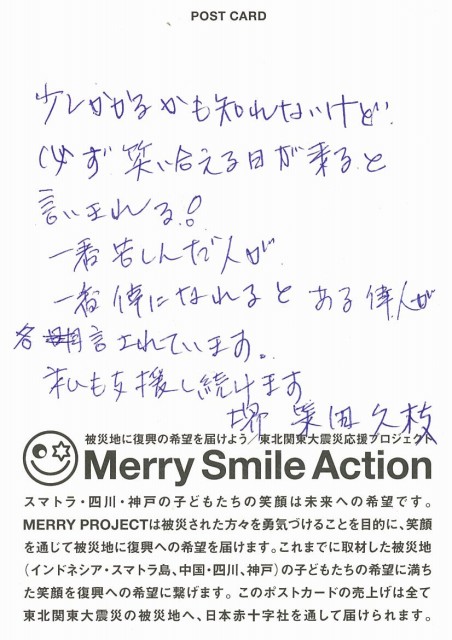 POST CARD
少しかかるかも知れないけど
必ず笑い合える日が来ると
言いきれる!
一番苦しんだ人が
一番偉になれるとある偉人が
言われています。
私も支援し続けます
柴田久枝
被災地に復興の希望を届けよう／東北関東大震災応援プロジェクト
Merry Smile Action
スマトラ・四川・神戸の子どもたちの笑顔は未来への希望です。
MERRY PROJECTは被災された方々を勇気づけることを目的に、笑顔
を通じて被災地に復興への希望を届けます。これまでに取材した被災地
(インドネシア・スマトラ島、中国・四川、神戸)の子どもたちの希望に満ち
た笑顔を復興への希望に繋げます。このポストカードの売上げは全て
東北関東大震災の被災地へ、日本赤十字社を通して届けられます。